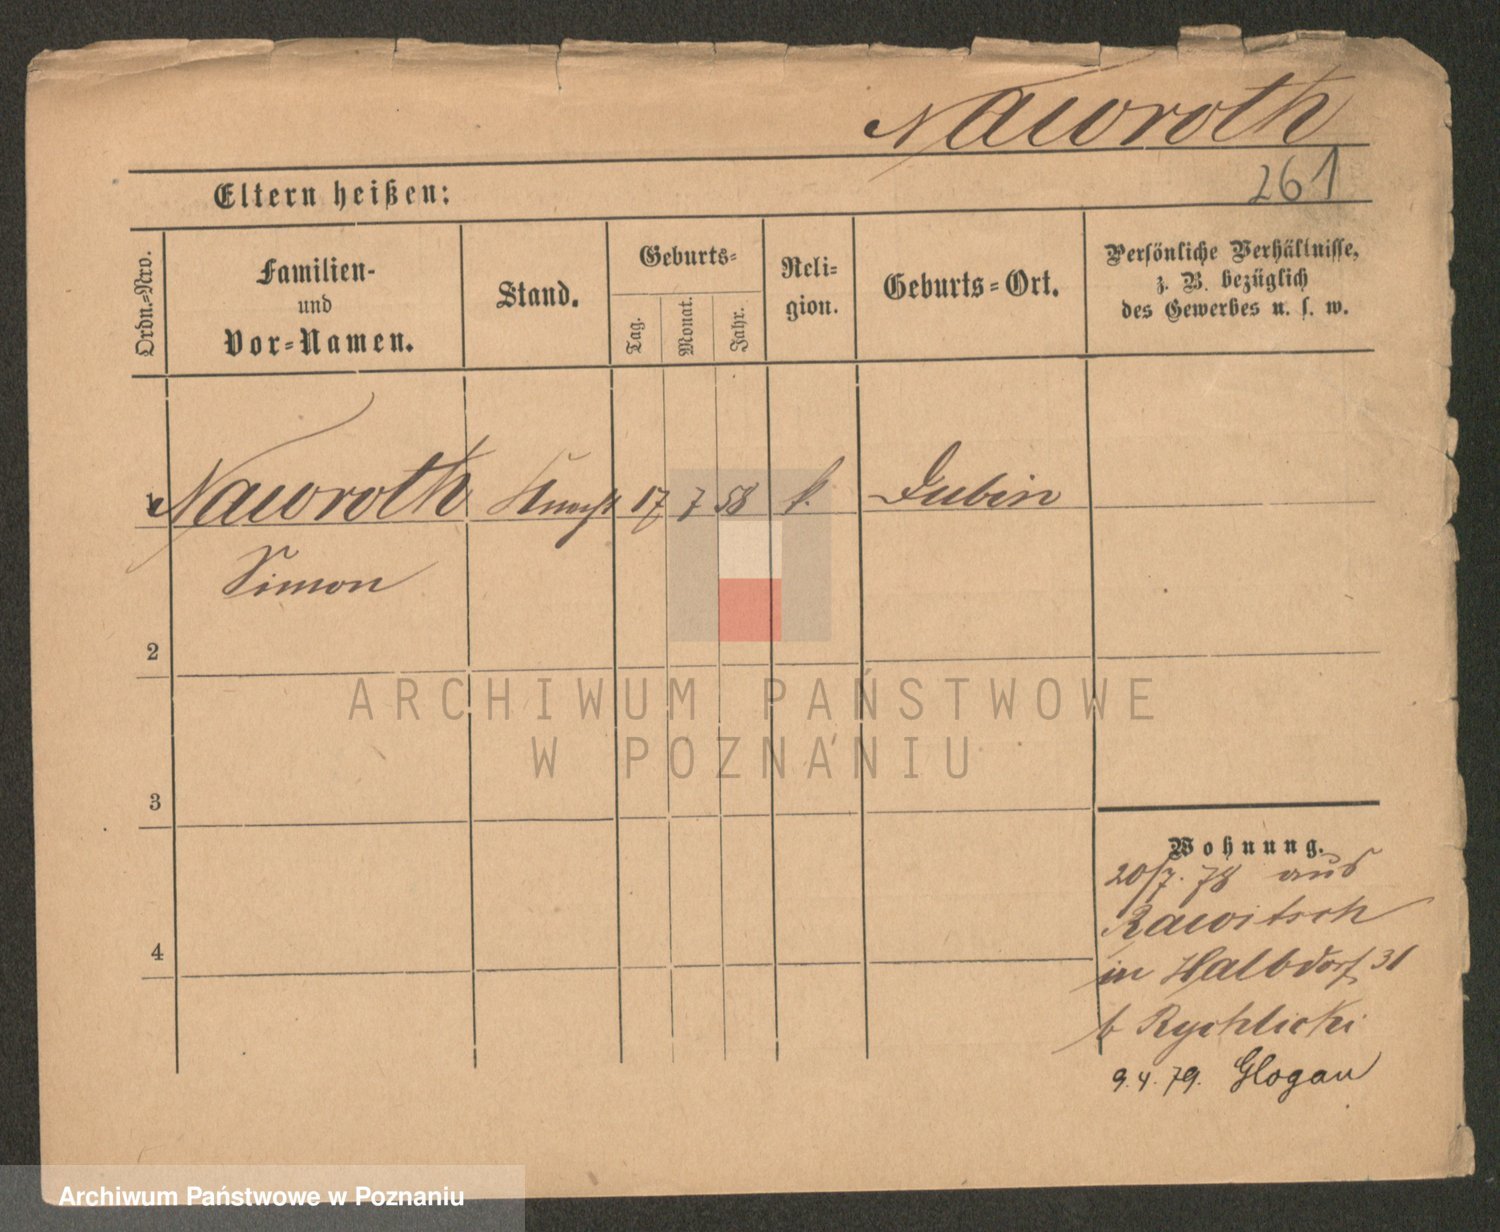 Nawroth
261
Eltern heißen:
Ordn.-Nro.
Familien-
und
Vor-Namen.
Stand.
Geburts-
Tag.
Monat.
Jahr.
Reli-
gion.
Geburts-Ort.
Persönliche Verhältnisse,
z. B. bezüglich
des Gewerbes u. s. w.
1 Nawroth 17 7 58 k. Dubin
Simon
2
3
4
Wohnung.
20/7. 78 aus
Rawitsch
in Halbdorf 31
b Rychlicki
9.4.79. Glogau
ARCHIWUM PAŃSTWOWE
W POZNANIU
Archiwum Państwowe w Poznaniu